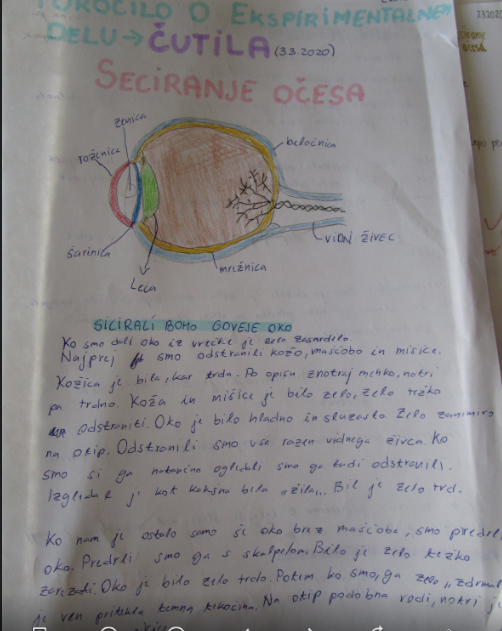 POROČILO O EKSPIRIMENTALNEM
DELU → ČUTILA (3.3.2020)
SECIRANJE OČESA
zenica
roženica
beločnica
šarenica
Leča
mrežnica
VIDNI ŽIVEC
SICIRALI BOMO GOVEJE OKO
Ko smo dali oko iz vrečke je zelo zasmrdelo.
Najprej smo odstranili kožo, maščobo in mišice.
Kožica je bila, kar trda. Po opisu znotraj mehko, notri
pa trdno. Koža in mišice je bilo zelo, zelo težko
odstraniti. Oko je bilo hladno in sluzasto. Zelo zanimivo
na otip. Odstranili smo vse razen vidnega živca. Ko
smo si ga natančno ogledali smo ga tudi odstranili.
Izgledal je kot kakšna bila "žila". Bil je zelo trd.
Ko nam je ostalo samo še oko brez maščobe, smo predrli
oko. Predrli smo ga s skalpelom. Bilo je zelo težko
zarezati. Oko je bilo zelo trdo. Potem ko smo ga zelo
je ven pritekla temna tekočina. Na otip podobna vodi, notri je